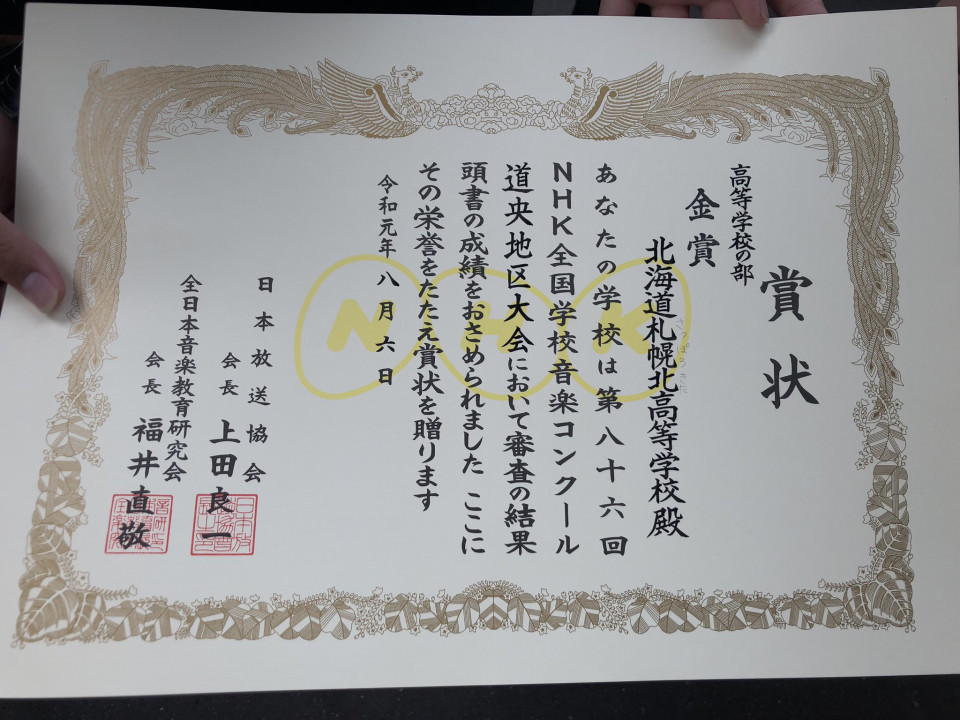 賞状
高等学校の部
金賞
北海道札幌北高等学校殿
あなたの学校は第八十六回
NHK全国学校音楽コンクール
道央地区大会において審査の結果
頭書の成績をおさめられました ここに
その栄誉をたたえ賞状を贈ります
令和元年八月六日
日本放送協会
会長 上田良一
全日本音楽教育研究会
会長 福井直敬
NHK